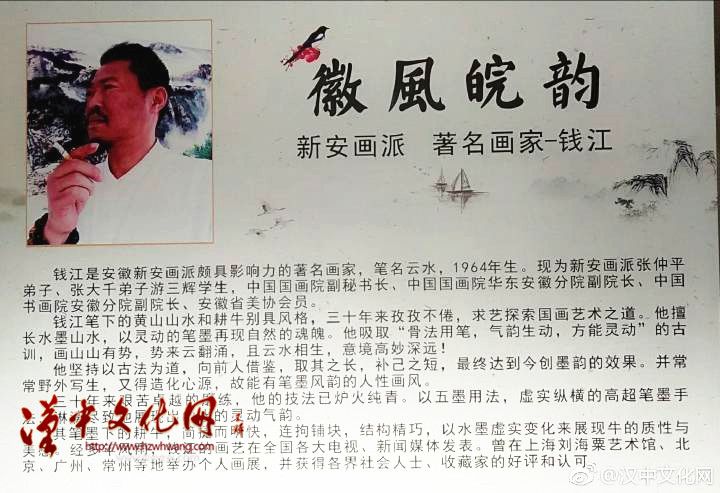 徽風皖韵
新安画派 著名画家-钱江
钱江是安徽新安画派颇具影响力的著名画家，笔名云水，1964年生。现为新安画派张仲平
弟子、张大千弟子游三辉学生，中国国画院副秘书长、中国国画院华东安徽分院副院长、中国
书画院安徽分院副院长、安徽省美协会员。
钱江笔下的黄山山水和耕牛别具风格，三十年来孜孜不倦，求艺探索国画艺术之道。他擅
长水墨山水，以灵动的笔墨再现自然的魂魄。他吸取“骨法用笔，气韵生动，方能灵动”的古
训，画山山有势，势来云翻涌，且云水相生，意境高妙深远！
他坚持以古法为道，向前人借鉴，取其之长，补己之短，最终达到今创墨韵的效果。并常
常野外写生，又得造化心源，故能有笔墨风韵的人性画风。
三十年来艰苦卓越的 练，他的技法已炉火纯青。以五墨用法，虚实纵横的高超笔墨手
法 的灵动气韵。
其笔墨下的耕牛，简 而 快，连拘铺块，结构精巧，以水墨虚实变化来展现牛的质性与
美 经 画艺在全国各大电视、新闻媒体发表。曾在上海刘海粟艺术馆、北
京、广州、常州等地举办个人画展，并获得各界社会人士、收藏家的好评和认可。
漢中文化网
http://www.hzwhwang.com
@汉中文化网